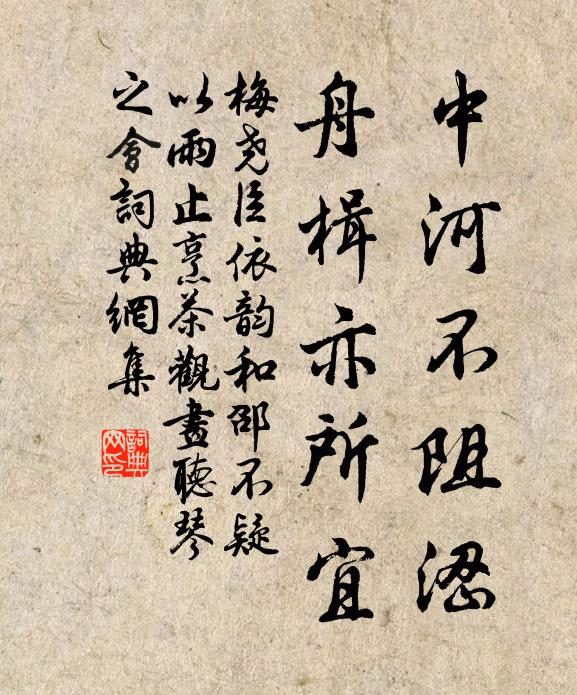 中河不阻涩
舟楫亦所宜
梅堯臣依韵和邵不疑
以雨止烹茶觀畫聽琴
之會詞典網集
詞典
网印